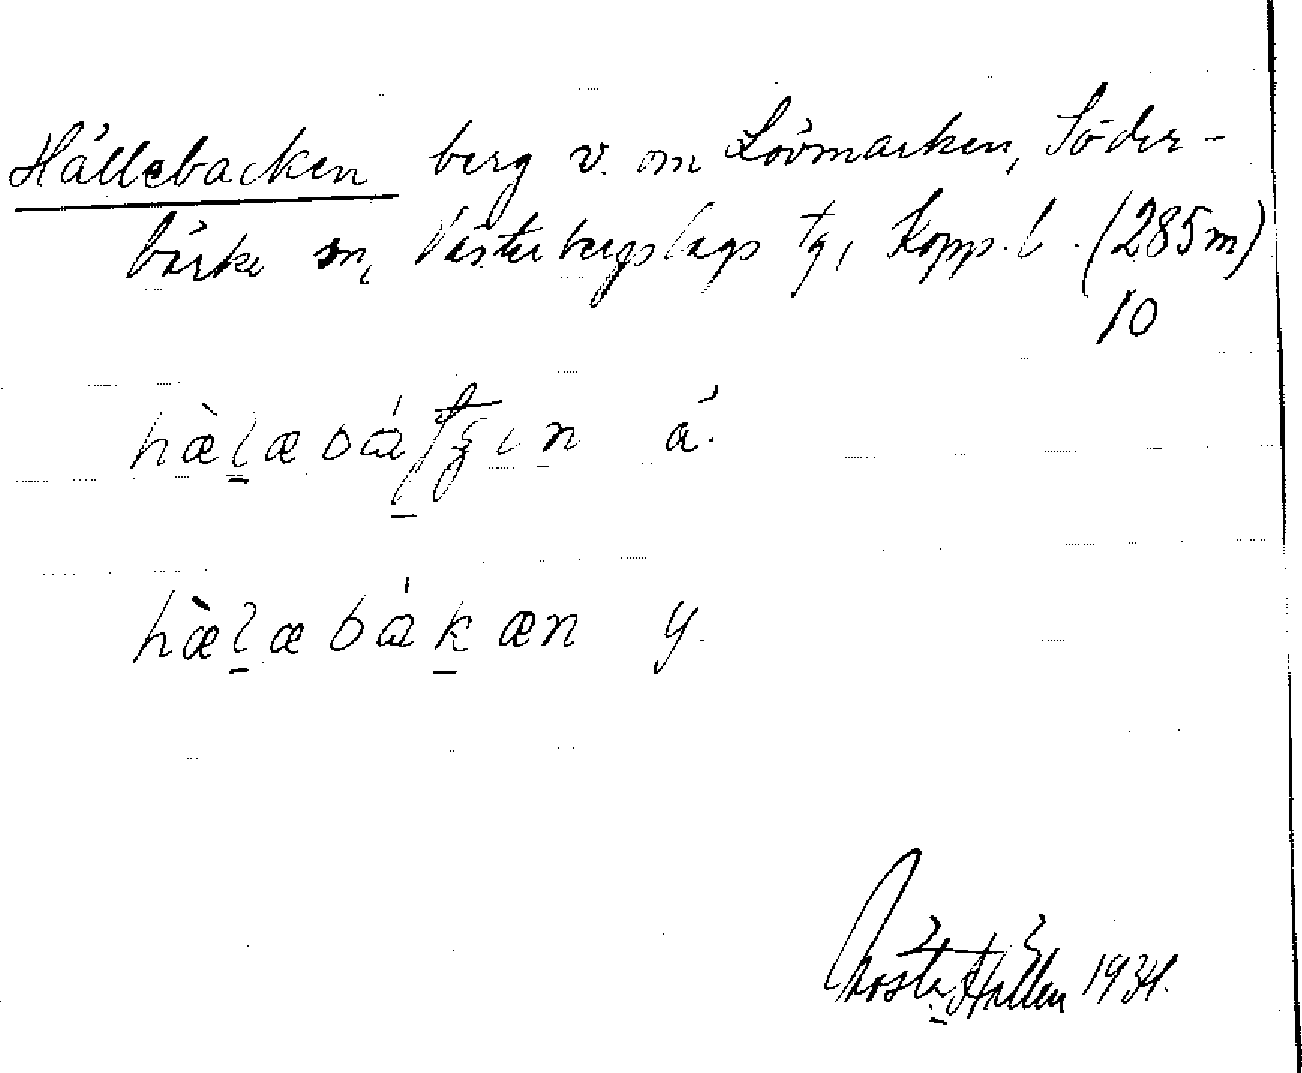 Hällebacken berg v. om Lövmarken, Söder-
bärke sn, Västerbergslags tg, Kopp. l. (285m)
10
hæ̀læbá
ä.
hæ̀læbákæn y.
Gösta Hallén 1934.